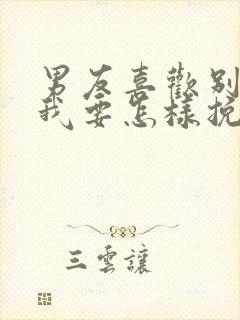 男友喜歡別
我要怎樣挽
三雲讓